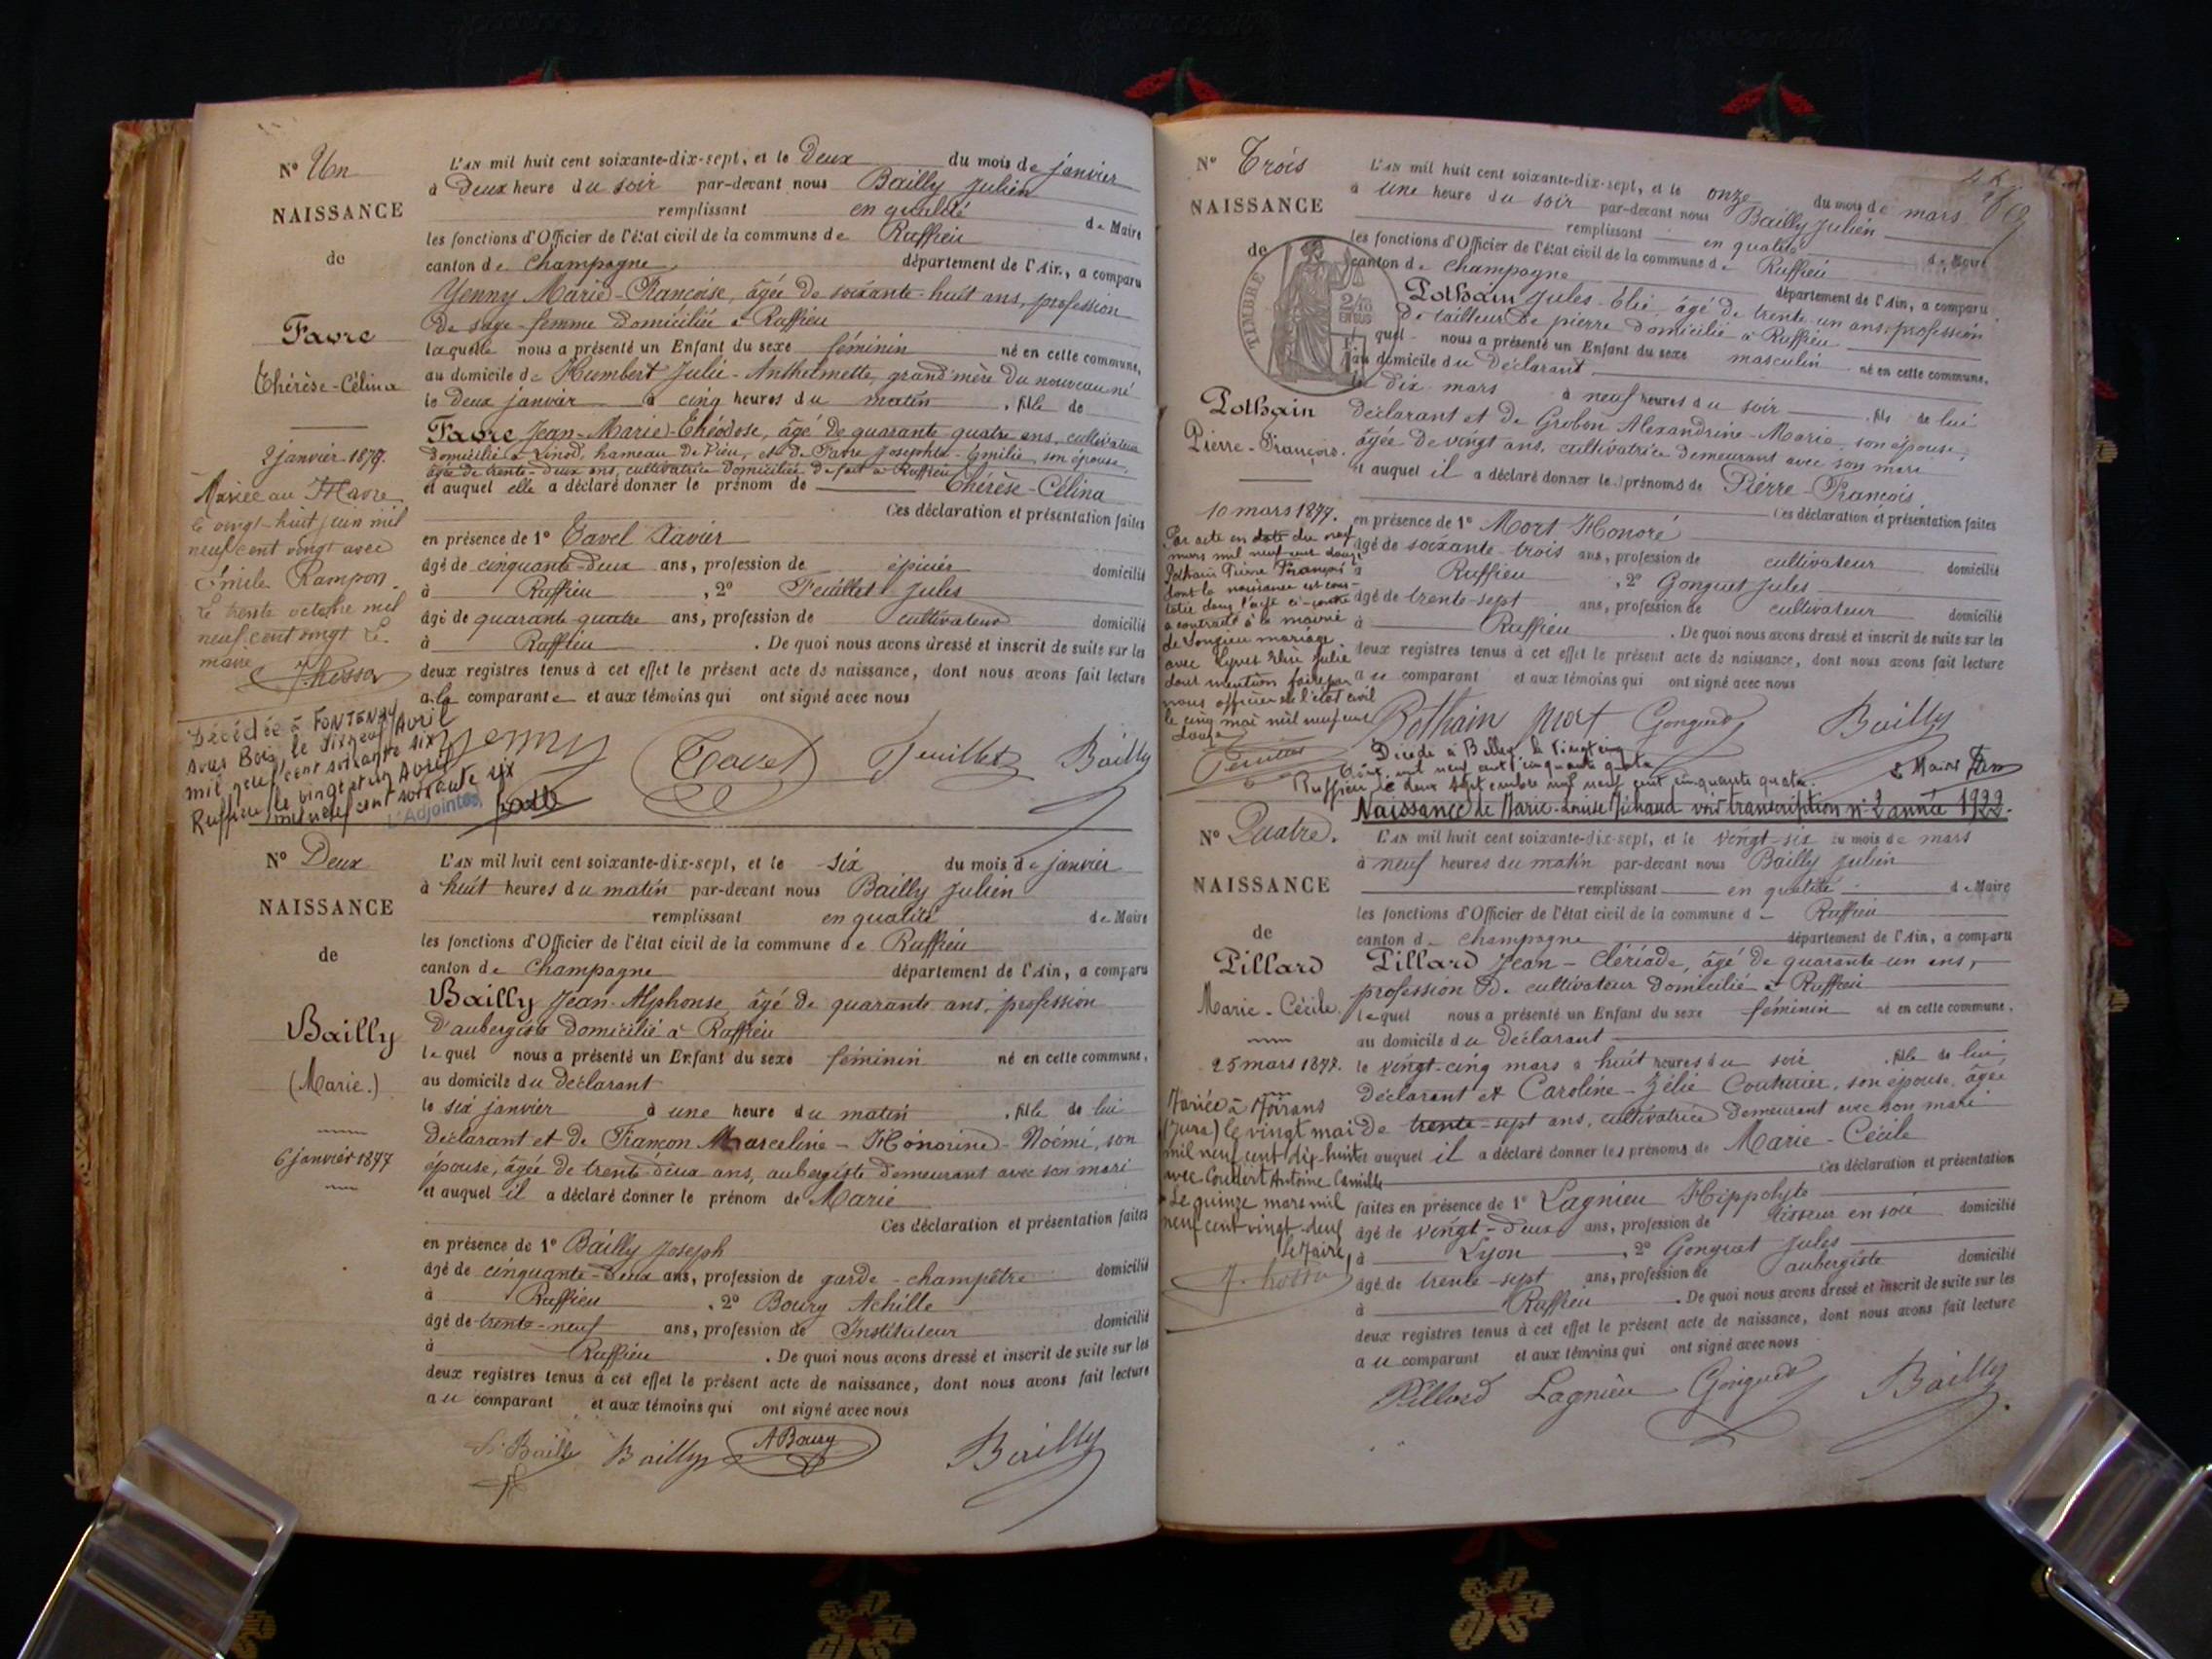 N° Un
NAISSANCE
de
Favre
Thérèse-Célina
2 janvier 1877.
Mariée au Havre
le vingt-huit juin mil
neuf cent vingt avec
Émile Rampon.
Le trente octobre mil
neuf cent vingt Le
maire
Décédée à FONTENAY
sous Bois, le dix neuf Avril
mil neuf cent soixante six
Ruffieu le vingt et un Avril
mil neuf cent soixante six
L'Adjointe,
L'AN mil huit cent soixante-dix-sept, et le Deux du mois de janvier
à Deux heure du soir par-devant nous Bailly Julien
remplissant en qualité de Maire
les fonctions d'Officier de l'état civil de la commune de Ruffieu
canton de Champagne département de l'Ain, a comparu
Yenny Marie-Françoise, âgée de soixante-huit ans, profession
de sage-femme domiciliée à Ruffieu
laquelle nous a présenté un Enfant du sexe féminin né en cette commune,
au domicile de Humbert Julie-Anthelmette, grand'mère du nouveau né
le deux janvier à cinq heures du matin, fille de
Favre Jean-Marie-Théodose, âgé de quarante quatre ans, cultivateur
domicilié à Linod, hameau de Vieu, et de Favre Josephte-Emilie, son épouse,
âgée de trente-deux ans, cultivatrice domiciliée de fait à Ruffieu
et auquel elle a déclaré donner le prénom de Thérèse-Célina
Ces déclaration et présentation faites
en présence de 1° Tavel Xavier
âgé de cinquante-deux ans, profession de épicier domicilié
à Ruffieu, 2° Feuillet Jules
âgé de quarante quatre ans, profession de cultivateur domicilié
à Ruffieu. De quoi nous avons dressé et inscrit de suite sur les
deux registres tenus à cet effet le présent acte de naissance, dont nous avons fait lecture
a la comparante et aux témoins qui ont signé avec nous
Yenny Tavel Feuillet Bailly
N° Deux
NAISSANCE
de
Bailly
(Marie.)
6 janvier 1877
L'AN mil huit cent soixante-dix-sept, et le six du mois de janvier
à huit heures du matin par-devant nous Bailly Julien
remplissant en qualité de Maire
les fonctions d'Officier de l'état civil de la commune de Ruffieu
canton de Champagne département de l'Ain, a comparu
Bailly Jean-Alphonse, âgé de quarante ans, profession
d'aubergiste domicilié à Ruffieu
lequel nous a présenté un Enfant du sexe féminin né en cette commune,
au domicile du déclarant
le six janvier à une heure du matin, fille de lui
déclarant et de Françon Marceline-Honorine-Noémi, son
épouse, âgée de trente-deux ans, aubergiste demeurant avec son mari
et auquel il a déclaré donner le prénom de Marie
Ces déclaration et présentation faites
en présence de 1° Bailly Joseph
âgé de cinquante-deux ans, profession de garde-champêtre domicilié
à Ruffieu, 2° Boury Achille
âgé de trente-neuf ans, profession de Instituteur domicilié
à Ruffieu. De quoi nous avons dressé et inscrit de suite sur les
deux registres tenus à cet effet le présent acte de naissance, dont nous avons fait lecture
au comparant et aux témoins qui ont signé avec nous
Bailly Bailly ABoury Bailly
N° Trois
NAISSANCE
de
TIMBRE
Pothain
Pierre-François.
10 mars 1877.
Par acte en date du neuf
mars mil neuf cent douze
Pothain Pierre François
dont la naissance est cons-
tatée dans l'acte ci-contre
a contracté à la mairie
de Songieu mariage
avec Elise Julie
dont mention faite par
nous officier de l'état civil
le cinq mai mil neuf cent
douze
L'AN mil huit cent soixante-dix-sept, et le onze du mois de mars
à une heure du soir par-devant nous Bailly Julien
remplissant en qualité de Maire
les fonctions d'Officier de l'état civil de la commune de Ruffieu
canton de Champagne département de l'Ain, a comparu
Pothain Jules-Elie, âgé de trente-un ans, profession
de tailleur de pierre domicilié à Ruffieu
quel nous a présenté un Enfant du sexe masculin né en cette commune,
au domicile du déclarant
le dix mars à neuf heures du soir, fils de lui
déclarant et de Grobon Alexandrine-Marie, son épouse,
âgée de vingt ans, cultivatrice demeurant avec son mari
et auquel il a déclaré donner les prénoms de Pierre-François
Ces déclaration et présentation faites
en présence de 1° Mort Honoré
âgé de soixante-trois ans, profession de cultivateur domicilié
à Ruffieu, 2° Gonguet Jules
âgé de trente-sept ans, profession de cultivateur domicilié
à Ruffieu. De quoi nous avons dressé et inscrit de suite sur les
deux registres tenus à cet effet le présent acte de naissance, dont nous avons fait lecture
au comparant et aux témoins qui ont signé avec nous
Pothain Mort Gonguet Bailly
Décédé à Belley le vingt cinq
Août mil neuf cent cinquante quatre
Ruffieu, le deux septembre mil neuf cent cinquante quatre. Le Maire
Naissance de Marie-Louise Michaud voir transcription n° 2 année 1922.
N° Quatre.
NAISSANCE
de
Pillard
Marie-Cécile.
25 mars 1877.
Mariée à Moirans
(Jura) le vingt mai
mil neuf cent dix-huit
avec Coudert Antoine Camille
Le quinze mars mil
neuf cent vingt-deux
Le Maire,
L'AN mil huit cent soixante-dix-sept, et le vingt-six du mois de mars
à neuf heures du matin par-devant nous Bailly Julien
remplissant en qualité de Maire
les fonctions d'Officier de l'état civil de la commune de Ruffieu
canton de Champagne département de l'Ain, a comparu
Pillard Jean-Clériade, âgé de quarante-un ans,
profession de cultivateur domicilié à Ruffieu
lequel nous a présenté un Enfant du sexe féminin né en cette commune,
au domicile du déclarant
le vingt-cinq mars à huit heures du soir, fille de lui
déclarant et Caroline-Zélie Couturier, son épouse, âgée
de trente-sept ans, cultivatrice demeurant avec son mari
et auquel il a déclaré donner les prénoms de Marie-Cécile
Ces déclaration et présentation
faites en présence de 1° Lagnieu Hippolyte
âgé de vingt-deux ans, profession de tisseur en soie domicilié
à Lyon, 2° Gonguet Jules
âgé de trente-sept ans, profession de aubergiste domicilié
à Ruffieu. De quoi nous avons dressé et inscrit de suite sur les
deux registres tenus à cet effet le présent acte de naissance, dont nous avons fait lecture
au comparant et aux témoins qui ont signé avec nous
Pillard Lagnieu Gonguet Bailly